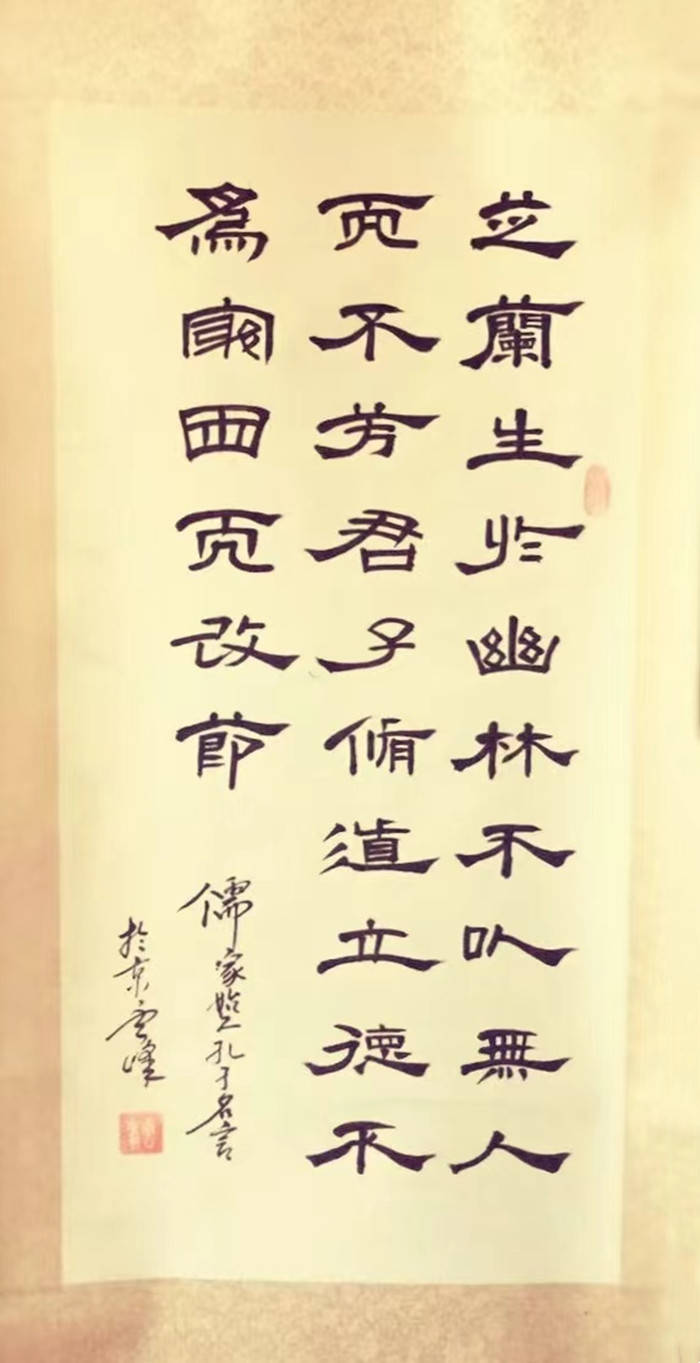 芝蘭生於幽林不以無人
而不芳君子脩道立德不
為窮困而改節
儒家孔子名言
於雲峰